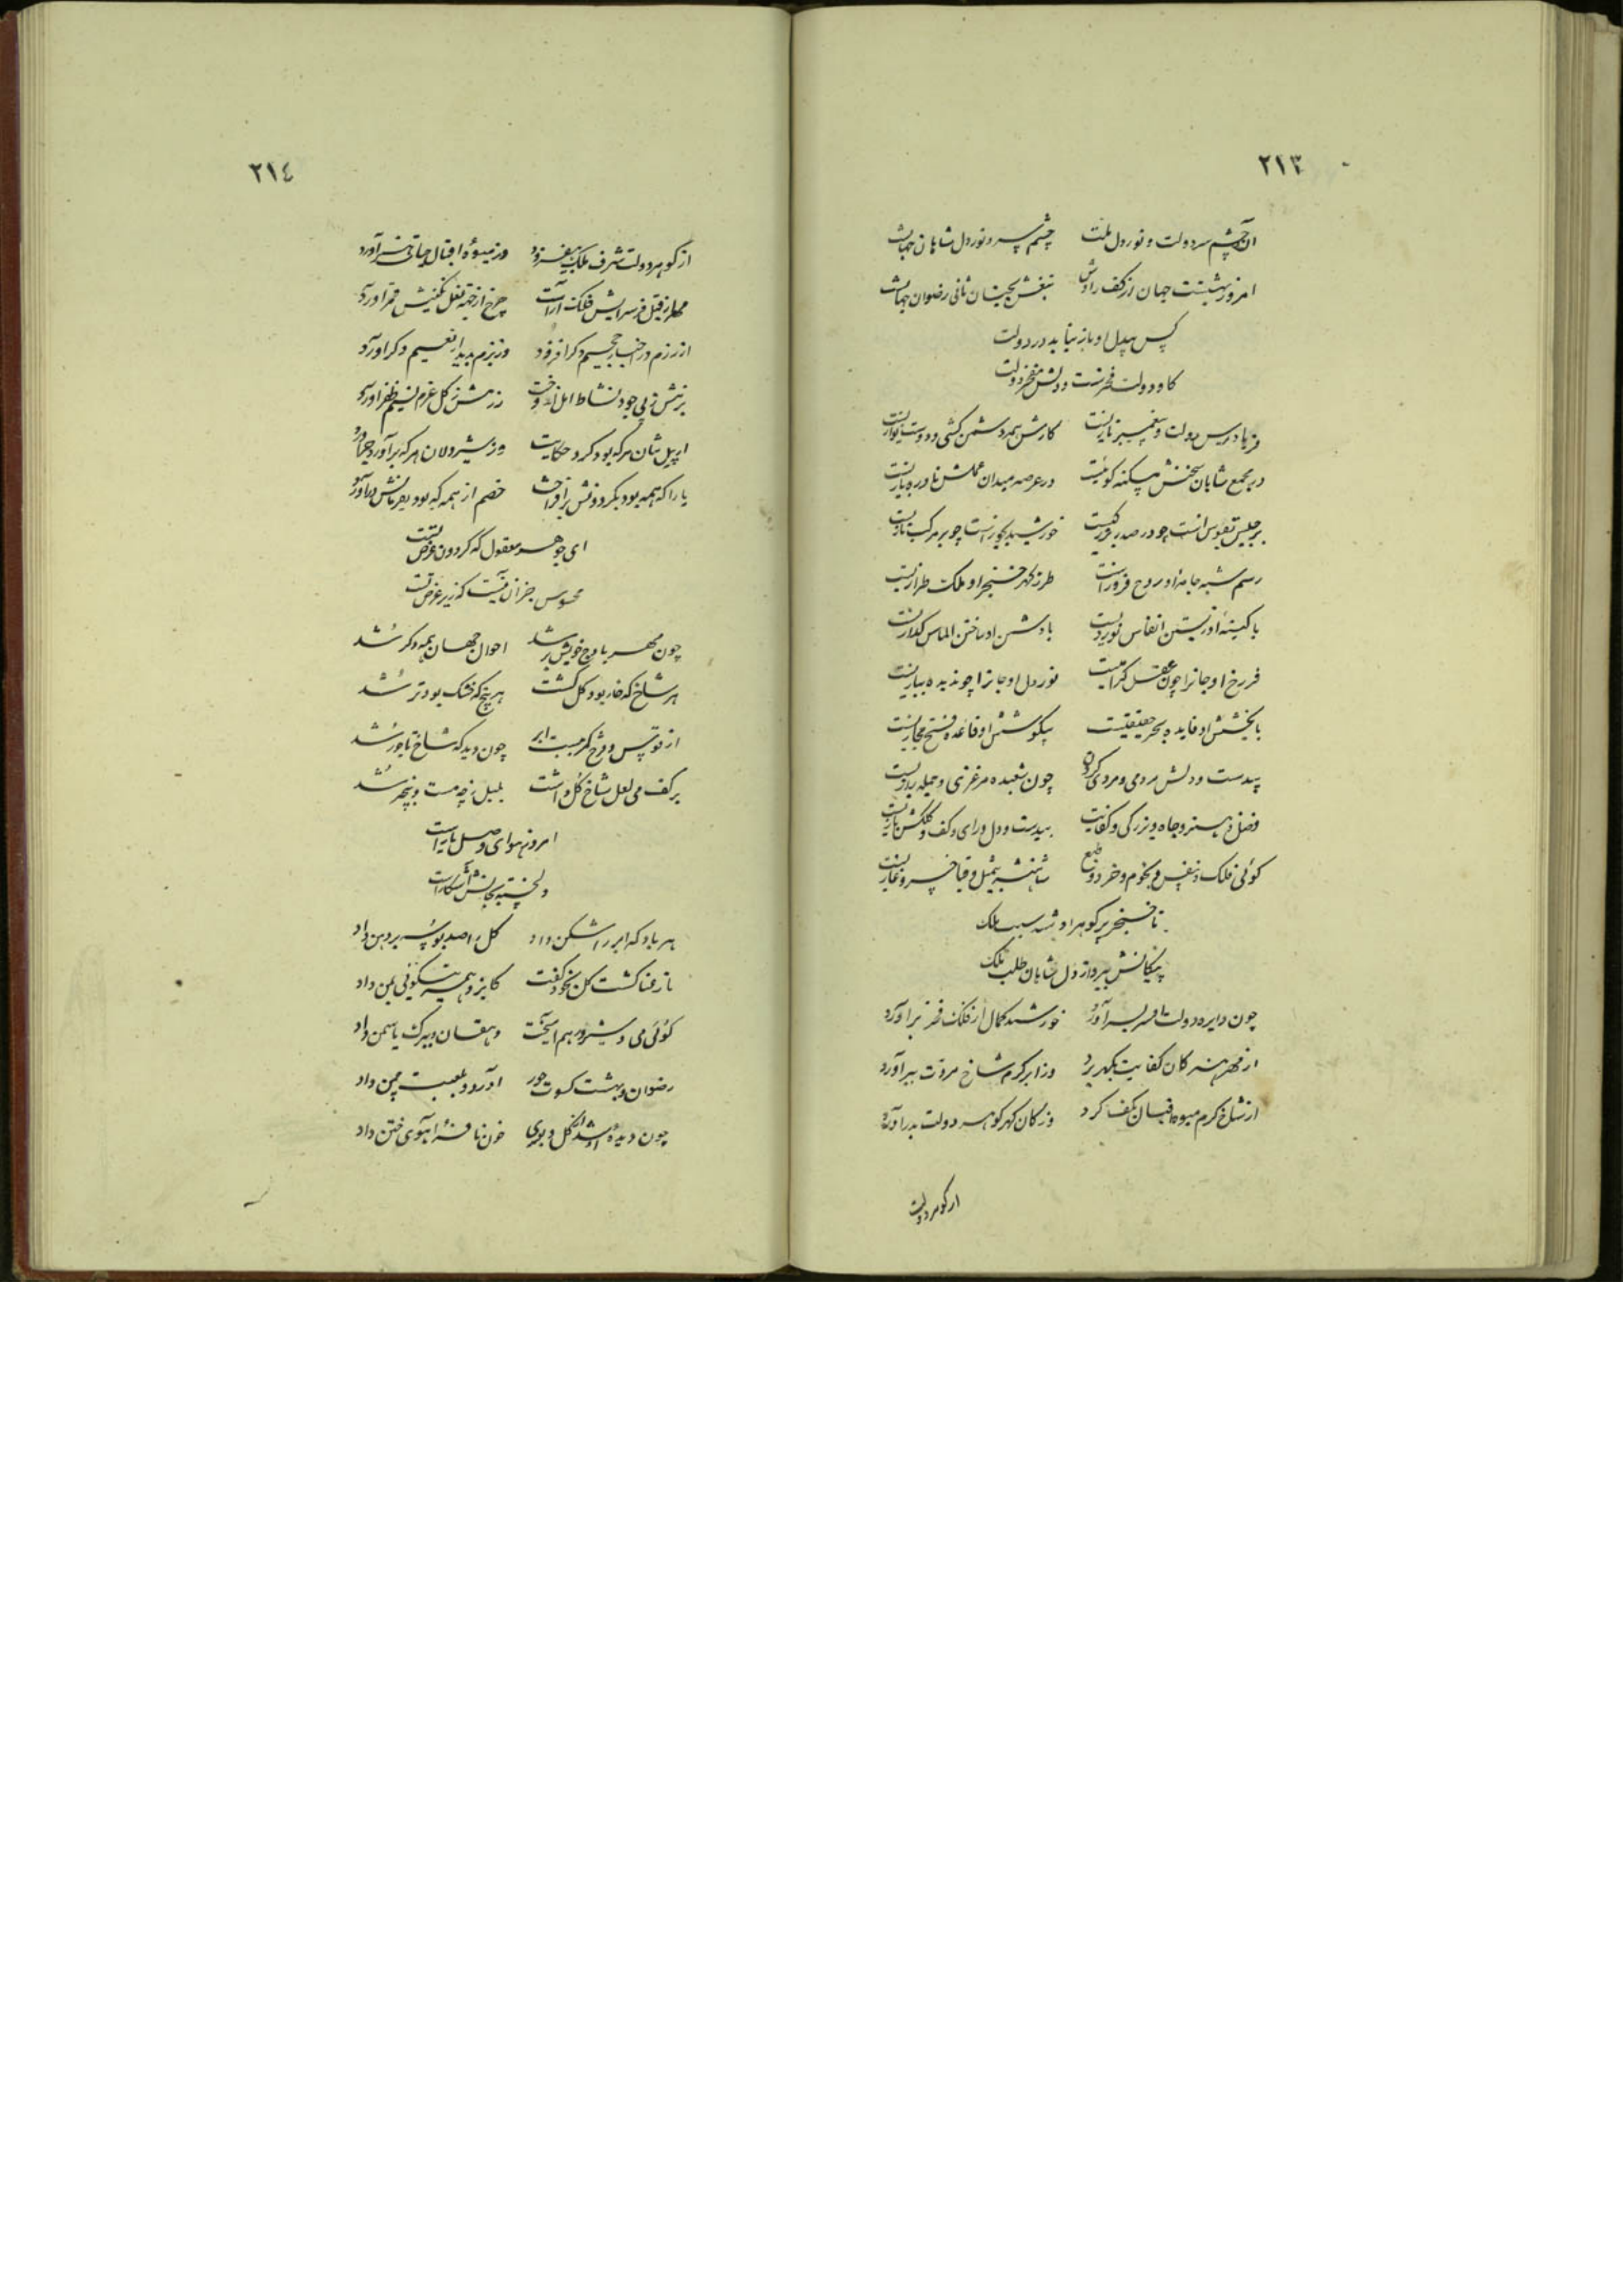 ٢١٣
آن چشم سر دولت و نور دل ملت چشم سر و نور دل شاهان جهانست
امروز بهشتست جهان از کف رادش تیغش بجهان ثانی رضوان جهانست
کس بیدل او باز نیابد در دولت
کاو دولت فخرست و دلش مفخر دولت
فریادرس دولت و پیغمبر تازیست کارش همه دشمن کشی و دوست نوازیست
در مجمع شاهان سخنش نکته کوئیست در عرصه میدان عملش نادره بازیست
برجیس بقوس است چو در صدر بزرکیست خورشید بجوزاست چو بر مرکب تازیست
رسم شبه جامه او روح فروزست طرز کهر خنجر او ملک طرازیست
با کینه او زیستن انفاس نوردیست با دشمن او ساختن الماس کدازیست
فر رخ او جانرا چون عقل کرامیست نور دل او جانرا چو ندیده بیاریست
با بخشش او فایده بحر حقیقیست بیکوشش او قاعده فتح مجازیست
بیدست و دلش مردمی و مردی کردن چون شعبده مرغزی و حیله رازیست
فضل و هنر و جاه و بزرکی و کفایت بیدست و دل و رای و کف و کلکش بازیست
کوئی فلک و نفس و نجوم و خرد و طبع شاهنشه و قبا خسرو غازیست
تا خنجر پر کوهر او شد سبب ملک
پیکانش بپرواز دل شاهان طلب ملک
چون دایره دولت افسر بسر آورد خورشید کمال از فلک فخر برآورد
از مهر هنر کان کفایت بکهر برد وز ابر کرم شاخ مروت ببر آورد
از شاخ کرم میوه فیسان بکف کرد وز کان کهر کوهر دولت بدر آورد
از کوهر دولت
٢١٤
از کوهر دولت شرف ملک بیفزود وز میوه اقبال حیاتی هنر آورد
فلک آراست چرخ از نعل نکینش قمر آورد
از رزم در اخبار جحیم دکر افزود وز بزم پدیدار نعیم دکر آورد
بزمش زپی جود نشاط امل اندوخت رزمش زکل عزم نسیم ظفر آورد
از پیل تنان هر که بود کرد حکایت وز شیردلان هر که برآورد
یارا که همه بود بکردونش برافراخت خصم از همه که بود بفرمانش درآورد
ای جوهر معقول که کردون عرض تست
محسوس جز آن نیست که زیر غرض تست
چون مهر باوج خویش برشد احوال جهان همه دکر شد
هر شاخ که خار بود کل کشت هر بیخ که خشک بود تر شد
از قوس قزح کمر بست ابر چون دید که شاخ تاجور شد
بر کف می لعل شاخ کل داشت بلبل زچه مست و بیخبر شد
امروز هوای وصل یار است
هر باد که ابر را شکن داد کل را صد بوسه بر دهن داد
تا رعنا کشت کل بخود کفت کایزد همه نیکوئی بمن داد
کوئی می و شیر در هم آمیخت دهقان و ببرک یاسمن داد
رضوان و بهشت کسوت حور آورد و بلعبت چمن داد
چون دیده او شد از کل و بوی خون نافه را بآهوی ختن داد